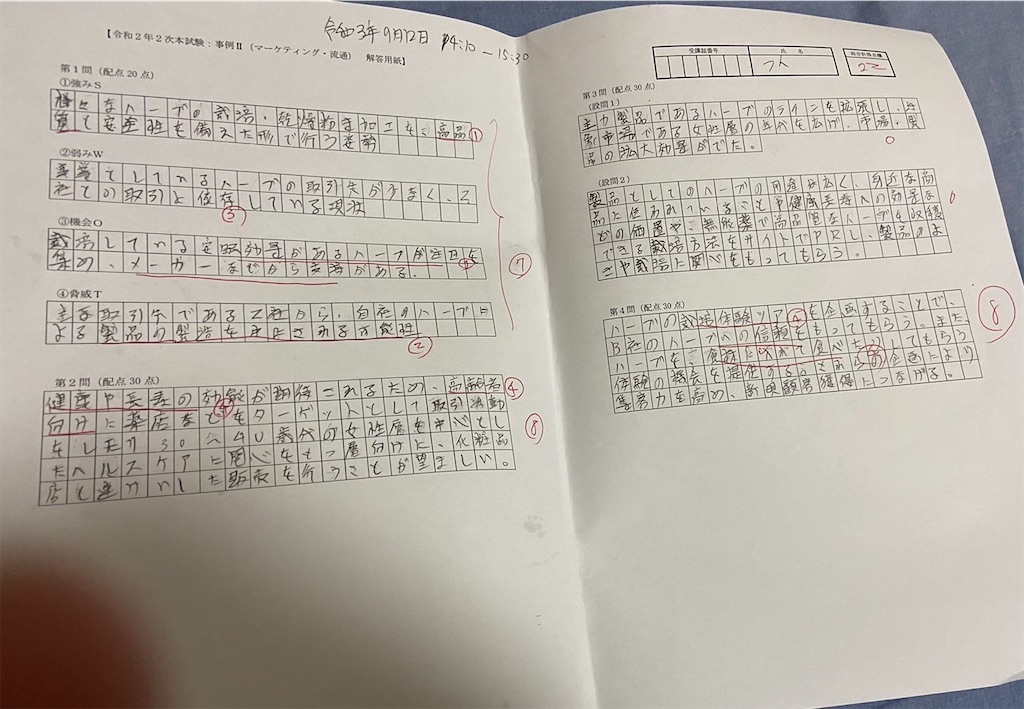 令和3年9月12日 14:10 — 15:30
【令和２年２次本試験：事例Ⅱ（マーケティング・流通） 解答用紙】
第１問（配点 20 点）
①強みＳ
様々なハーブの栽培・乾燥粉末加工を、高品
質で安全性を備えた形で行う姿勢
①
②弱みＷ
主要としているハーブの取引先が少なく、Z
社との取引に依存している現状
③
③機会Ｏ
栽培している安眠効果があるハーブが注目を
集め、メーカーなどから引合がある。
④脅威Ｔ
主な取引先であるZ社から、自社のハーブに
よる製品の製造を中止される可能性
②
⑦
第２問（配点 30 点）
健康や長寿の効能が期待されるため、高齢者
向けに薬店などをターゲットとして取引活動
をしたり30〜40歳代の女性層を中心とし
たヘルスケアに関心をもつ層向けに、化粧品
店と連携した販売を行うことが望ましい。
④
④
⑧
受講証番号
氏 名
総合計得点欄
22
第３問（配点 30 点）
（設問１）
主力製品であるハーブのラインを拡張し、対
象市場である女性層の年代を広げ、市場・製
品の拡大効果がでた。
0
（設問２）
製品としてのハーブの用途が広く、身近な商
品に使われていることや健康長寿への効果な
どの価値や、無農薬で高品質なハーブを収穫
できる栽培方法をサイトでPRし、製品のよ
さや栽培に関心をもってもらう。
0
第４問（配点 30 点）
ハーブの栽培体験ツアーを企画することで、
B社のハーブへの信頼をもってもらう。また
ハーブをご食材に入れて食べたりしてもらう
体験の機会を提供する。これらの企画により
集客力を高め、新規顧客獲得につなげる。
⑧